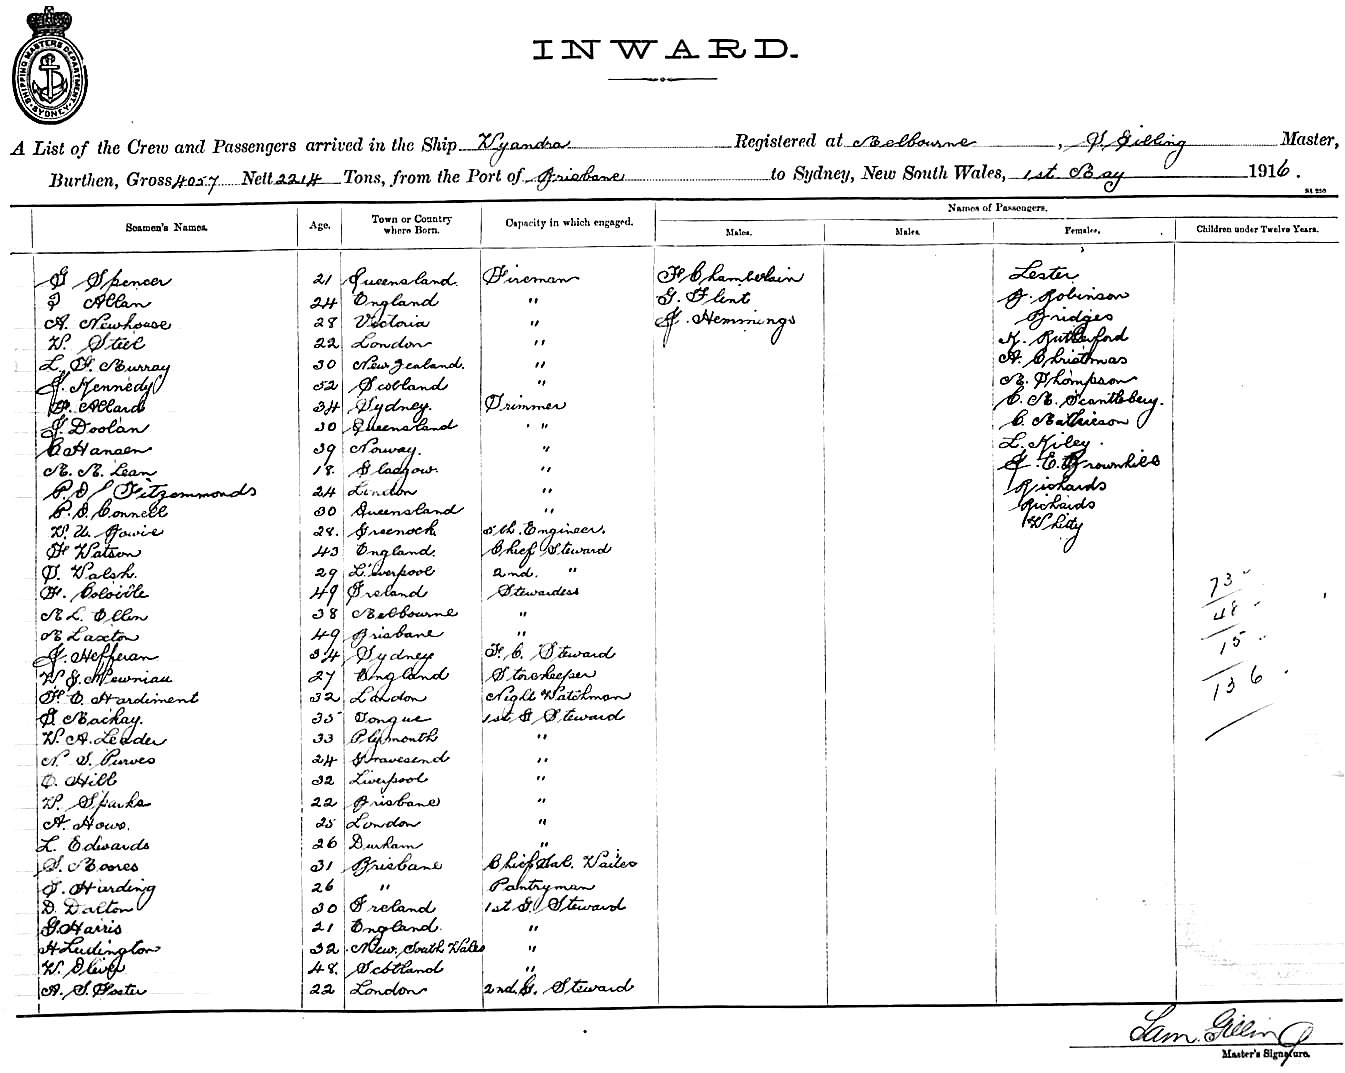 SHIPPING MASTERS DEPARTMENT SYDNEY
INWARD.
A List of the Crew and Passengers arrived in the Ship Wyandra Registered at Melbourne, S. Gilling Master,
Burthen, Gross 4057 Nett 2214 Tons, from the Port of Brisbane to Sydney, New South Wales, 1st May 1916.
Names of Passengers.
Seamen's Names. Age. Town or Country where Born. Capacity in which engaged. Males. Males. Females. Children under Twelve Years.
G Spencer 21 Queensland. Fireman F Chamberlain Lester
Allan 24 England " G. Flint B. Robinson
A. Newhouse 28 Victoria " J. Hemmings Bridges
W. Steel 22 London " K. Rutherford
L. F. Murray 30 New Zealand. " A. Christmas
J. Kennedy 52 Scotland " M. Thompson
P. Allard 34 Sydney. Trimmer C. M. Scantlebery.
J. Doolan 30 Queensland " C. Mathieson
C Hansen 39 Norway. " L. Kiley.
M. M. Lean 18. Glasgow. " J. E. Brownhill
P. D. J Fitzemmonds 24 London " Richards
P. J. Connell 30 Queensland " Richards
W. U. Bowie 28. Greenock 5th. Engineer. Whitty
F Watson 43 England. Chief Steward
T. Walsh. 29 Liverpool 2nd. "
F. Coloville 49 Ireland Stewardess 73
M L. Ellen 38 Melbourne " 48
M Laxton 49 Brisbane " 15
J. Hefferan 34 Sydney F. C. Steward
W J. Mewniau 27 England Storekeeper 136
F. C. Hardiment 32 London Night Watchman
D Mackay. 35 Tongue 1st G Steward
W. A. Leader 33 Plymouth "
N. S. Purves 24 Gravesend "
C. Hill 32 Liverpool "
W. Sparks 22 Brisbane "
A. Howe. 25 London "
L. Edwards 26 Durham "
S. Moores 31 Brisbane Chief Sal. Waiter
S. Harding 26 " Pantryman
D. Dalton 30 Ireland 1st G. Steward
G. Harris 21 England. "
H Ludington 32 New. South Wales "
W. Oliver 48. Scotland "
A. S. Foster 22 London 2nd G. Steward
Sam. Gilling
Master's Signature.